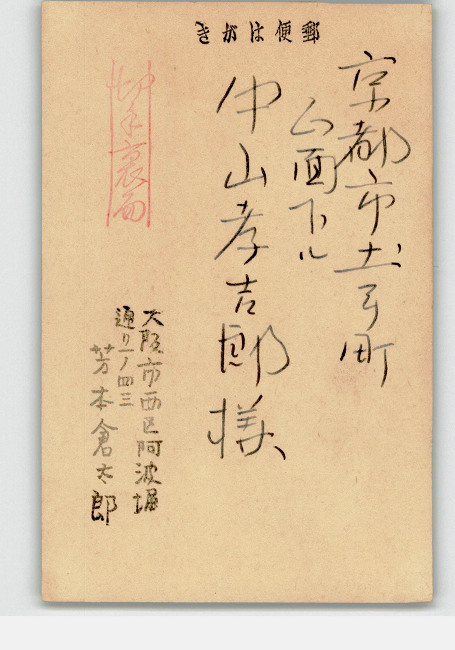 郵便はがき
京都市土手町
正面下ル
中山孝吉郎様
切手裏面
大阪市西区阿波堀
通リ一ノ四三
芳本倉太郎